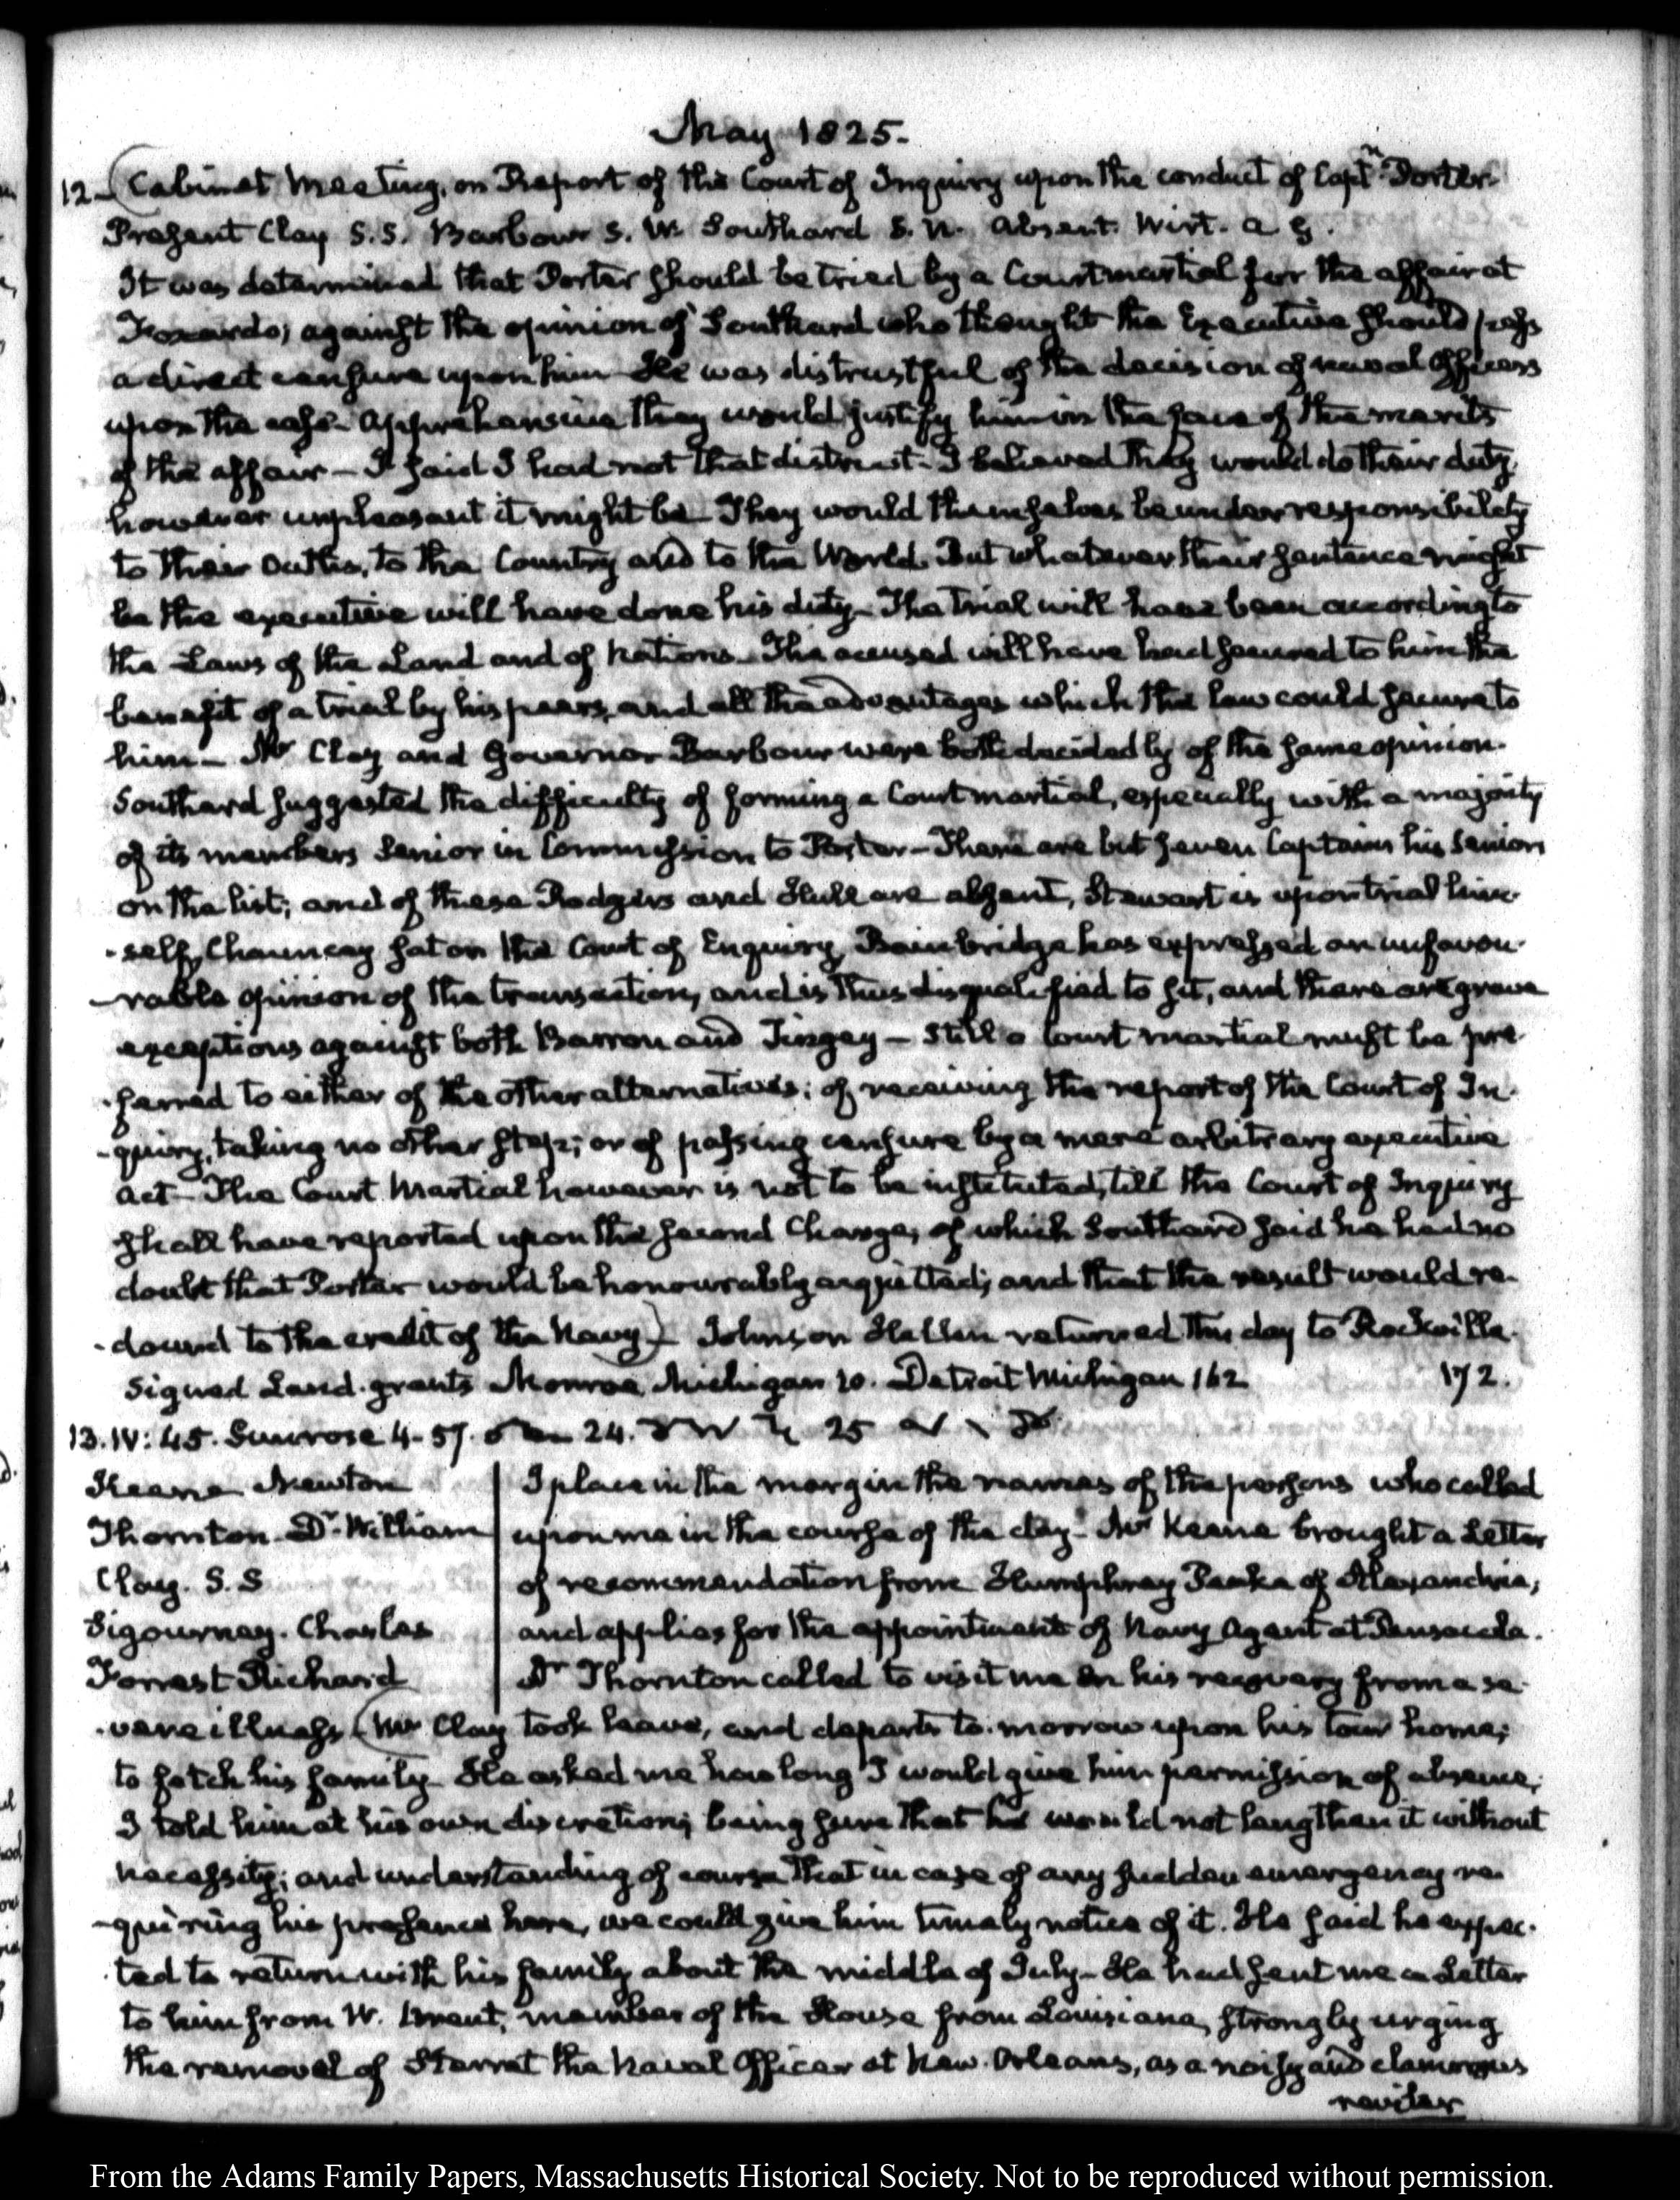 May 1825.
12. Cabinet Meeting, on Report of the Court of Inquiry upon the conduct of Captn. Porter.
Present Clay S.S. Barbour S. W. Southard S. N. Absent. Wirt. A G.
It was determined that Porter should be tried by a Court martial for the affair at
Foxardo; against the opinion of Southard who thought the Executive should pass
a direct censure upon him He was distrustful of the decision of naval Officers
upon the case. Apprehensive they would justify him in the face of the merits
of the affair — I said I had not that distrust. I believed they would do their duty,
however unpleasant it might be. They would themselves be under responsibility
to their Oaths, to the Country and to the World. But whatever their sentence might
be the executive will have done his duty. The trial will have been according to
the Laws of the Land and of Nations. The accused will have had secured to him the
benefit of a trial by his peers, and all the advantages which the law could secure to
him — Mr Clay and Governor Barbour were both decidedly of the same opinion.
Southard suggested the difficulty of forming a Court martial, especially with a majority
of its members Senior in Commission to Porter — There are but seven Captains his Seniors
on the list; and of these Rodgers and Hull are absent, Stewart is upon trial him-
-self, Chauncey sat on the Court of Enquiry, Bainbridge has expressed an unfavou-
-rable opinion of the transaction, and is thus disqualified to sit, and there are grave
exceptions against both Barron and Tingey — Still a Court martial must be pre-
-ferred to either of the other alternatives; of receiving the report of the Court of In-
-quiry, taking no other step; or of passing censure by a mere arbitrary executive
act — The Court Martial however is not to be instituted, till the Court of Inquiry
shall have reported upon the second Charge, of which Southard said he had no
doubt that Porter would be honourably acquitted; and that the result would re-
-dound to the credit of the Navy — Johnson Hellen returned this day to Rockville.
Signed Land. grants Monroe Michigan 10. Detroit Michigan 162 172.
13. IV: 45. Sun rose 4-57. 24. 25
Keene Newton
Thornton Dr. William
Clay. S. S
Sigourney. Charles
Forrest Richard
I place in the margin the names of the persons who called
upon me in the course of the day. Mr Keene brought a Letter
of recommendation from Humphrey Peake of Alexandria,
and applies for the appointment of Navy Agent at Pensacola.
Dr Thornton called to visit me on his recovery from a se-
-vere illness (Mr Clay took leave, and departs to-morrow upon his tour home;
to fetch his family. He asked me how long I would give him permission of absence,
I told him at his own discretion; being sure that he would not lengthen it without
necessity; and understanding of course that in case of any sudden emergency re-
-quiring his presence here, we could give him timely notice of it. He said he expec-
-ted to return with his family about the middle of July — He had sent me a Letter
to him from W. Brent, member of the House from Louisiana, strongly urging
the removal of Sterret the Naval Officer at New-Orleans, as a noisy and clamorous
reviler
From the Adams Family Papers, Massachusetts Historical Society. Not to be reproduced without permission.